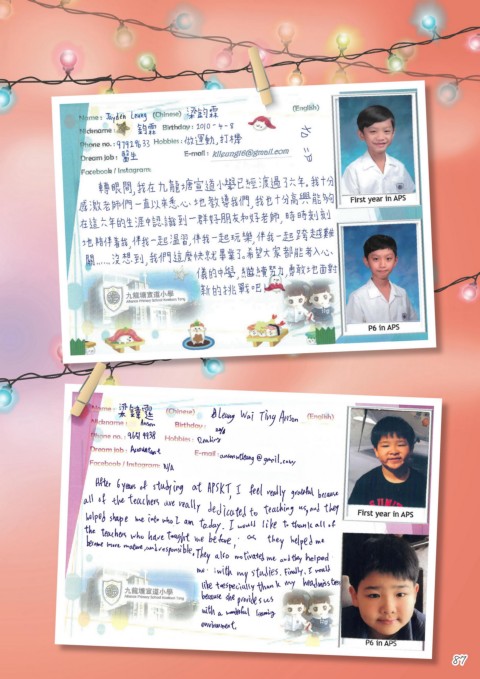 Name: Jayden Leung (Chinese) 梁鈞霖 (English)
Nickname: 鈞霖 Birthday: 2010-4-8
Phone no.: Hobbies: 做運動,打機
Dream job: 醫生 E-mail:
Facebook / Instagram:
轉眼間,我在九龍塘宣道小學已經渡過了六年。我十分
感激老師們一直以來悉心地教導我們,我也十分高興能夠
在這六年的生涯中認識到一群好朋友和好老師,時時刻刻
地陪伴着我,伴我一起溫習,伴我一起玩樂,伴我一起跨越難
關……沒想到,我們這麼快就畢業了。希望大家都能考入心
儀的中學,繼續努力,勇敢地面對
新的挑戰吧!
九龍塘宣道小學
Alliance Primary School Kowloon Tong
First year in APS
P6 in APS
Name: (Chinese) Leung Wai Ting Anson (English)
Nickname: Anson Birthday:
Phone no.: Hobbies:
Dream job: Accountant E-mail:
Facebook / Instagram: N/A
After 6 years of studying at APSKT, I feel really grateful because
all of the teachers are really dedicated to teaching us, and they
helped shape me into who I am today. I would like to thank all of
the teachers who have taught me before, as they helped me
become more mature and responsible. They also motivated me and they helped
me with my studies. Finally, I would
like to especially thank my headmistress
because she provides us
with a wonderful learning
environment.
九龍塘宣道小學
Alliance Primary School Kowloon Tong
First year in APS
P6 in APS
87